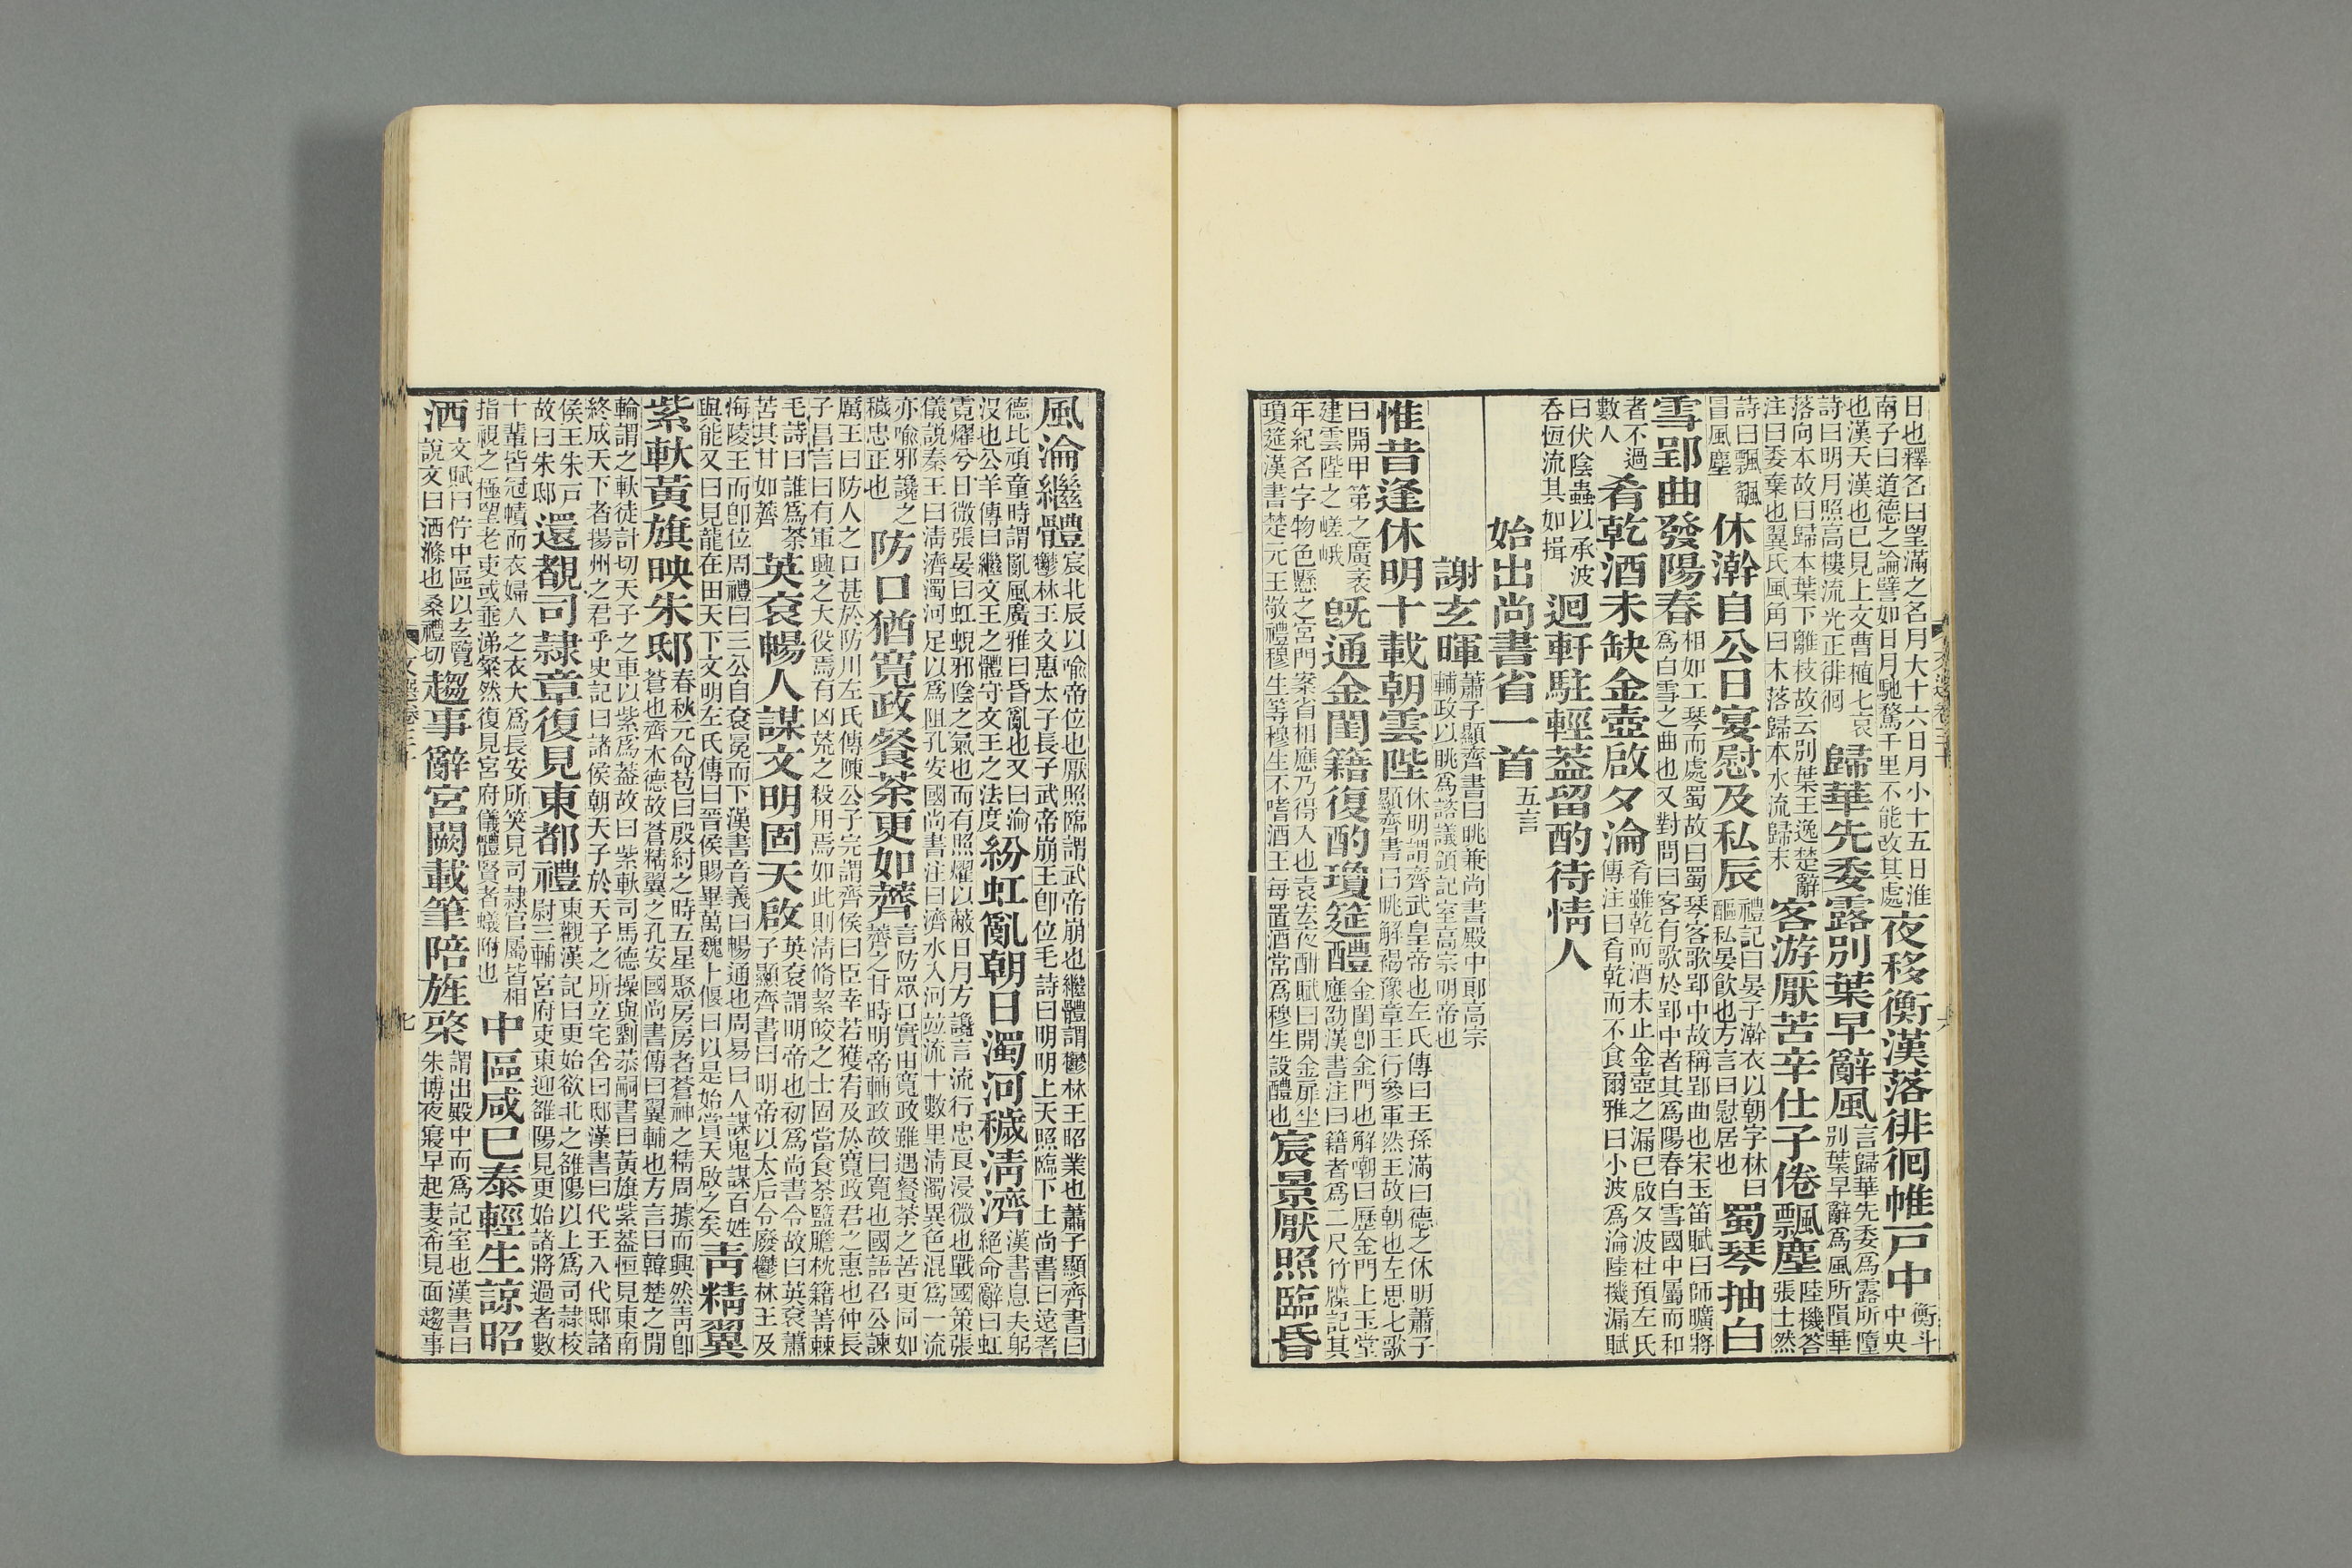 日也釋名曰望滿之名月大十六日月小十五日淮南子曰道德之論譬如日月馳騖千里不能改其處夜移衡漢落徘徊帷戸中衡斗中央
也漢天漢也已見上文曹植七哀詩曰明月照高樓流光正徘徊歸華先委露別葉早辭風言歸華先委爲露所墮別葉早辭爲風所隕華
落向本故曰歸本葉下離枝故云別葉王逸楚辭注曰委棄也翼氏風角曰木落歸本水流歸末客游厭苦辛仕子倦飄塵陸機答張士然
詩曰飄颻冒風塵休澣自公日宴慰及私辰禮記曰晏子澣衣以朝字林曰醧私宴飲也方言曰慰居也蜀琴抽白
雪郢曲發陽春相如工琴而處蜀故曰蜀琴客歌郢中故稱郢曲也宋玉笛賦曰師曠將爲白雪之曲也又對問曰客有歌於郢中者其爲陽春白雪國中屬而和
者不過數人肴乾酒未缺金壺啟夕淪肴雖乾而酒未止金壺之漏已啟夕波杜預左氏傳注曰肴乾而不食爾雅曰小波爲淪陸機漏賦
曰伏陰蟲以承波吞恆流其如揖迴軒駐輕葢留酌待情人
始出尚書省一首五言
謝玄暉蕭子顯齊書曰眺兼尚書殿中郎高宗輔政以眺爲諮議領記室高宗明帝也
惟昔逢休明十載朝雲陛休明謂齊武皇帝也左氏傳曰王孫滿曰德之休明蕭子顯齊書曰眺解褐豫章王行參軍然王故朝也左思七歌
曰開甲第之廣袤建雲陛之嵯峨旣通金閨籍復酌瓊筵醴金閨卽金門也解嘲曰歷金門上玉堂應劭漢書注曰籍者爲二尺竹牒記其
年紀名字物色懸之宮門案省相應乃得入也袁宏夜酣賦曰開金扉坐瓊筵漢書楚元王敬禮穆生等穆生不嗜酒王每置酒常爲穆生設醴也宸景厭照臨昏
風淪繼體宸北辰以喻帝位也厭照臨謂武帝崩也繼體謂鬱林王昭業也蕭子顯齊書曰鬱林王文惠太子長子武帝崩王卽位毛詩曰明明上天照臨下土尚書曰遠耆
德比頑童時謂亂風廣雅曰昏亂也又曰淪沒也公羊傳曰繼文王之體守文王之法度紛虹亂朝日濁河穢淸濟漢書息夫躬絕命辭曰虹
霓燿兮日微張晏曰虹蜺邪陰之氣也而有照燿以蔽日月方讒言流行忠良浸微也戰國策張儀說秦王曰淸濟濁河足以爲阻孔安國尚書注曰濟水入河竝流十數里淸濁異色混爲一流
亦喻邪讒之穢忠正也防口猶寬政餐荼更如薺言防眾口實由寬政雖遇餐荼之苦更同如薺之甘時明帝輔政故曰寬也國語召公諫
厲王曰防人之口甚於防川左氏傳陳公子完謂齊侯曰臣幸若獲宥及於寬政君之惠也仲長子昌言曰有軍興之大役焉有凶荒之殺用焉如此則淸脩絜皎之士固當食荼鹽膽枕籍菁棘
毛詩曰誰爲荼苦其甘如薺英袞暢人謀文明固天啟英袞謂明帝也初爲尚書令故曰英袞蕭子顯齊書曰明帝以太后令廢鬱林王及
海陵王而卽位周禮曰三公自袞冕而下漢書音義曰暢通也周易曰人謀鬼謀百姓與能又曰見龍在田天下文明左氏傳曰晉侯賜畢萬魏卜偃曰以是始賞天啟之矣靑精翼
紫軑黃旗映朱邸春秋元命苞曰殷紂之時五星聚房房者蒼神之精周據而興然靑卽蒼也齊木德故蒼精翼之孔安國尚書傳曰翼輔也方言曰韓楚之閒
輪謂之軑徒計切天子之車以紫爲葢故曰紫軑司馬德操與劉恭嗣書曰黃旗紫葢恒見東南終成天下者揚州之君乎史記曰諸侯朝天子於天子之所立宅舍曰邸漢書曰代王入代邸諸
侯王朱戸故曰朱邸還覩司隷章復見東都禮東觀漢記曰更始欲北之雒陽以上爲司隷校尉三輔宮府吏東迎雒陽見更始諸將過者數
十輩皆冠幘而衣婦人之衣大爲長安所笑見司隷官屬皆相指視之極望老吏或垂涕粲然復見宮府儀體賢者蟻附也中區咸已泰輕生諒昭
洒文賦曰佇中區以玄覽說文曰洒滌也桑禮切趨事辭宮闕載筆陪旌棨謂出殿中而爲記室也漢書曰朱博夜寢早起妻希見面趨事